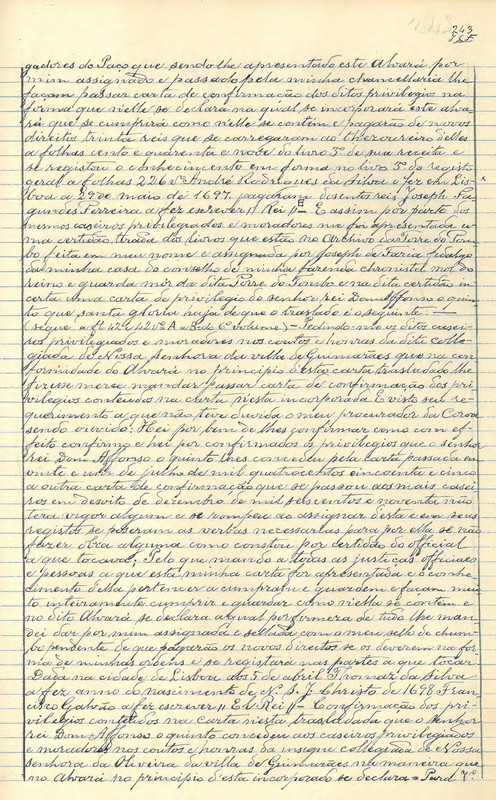 243
gadores do Paço que sendo lhe apresentado este Alvará por
mim assignado e passado pela minha chancellaria lhe
façam passar carta de confirmação dos ditos privilegios na
forma que nelle se declara na qual se incorporará este alva
rá que se cumprirá como nelle se contém e pagarão de novos
direitos trinta reis que se carregaram ao thezoureiro delles
a folhas cento e quarenta e nove do livro 5º de sua receita e
se registou o conhecimento em forma no livro 5º do registo
geral a folhas 226 vº André Rodrigues da Silva a fez em Lis
boa a 29 de maio de 1697. pagaram dusentos reis Joseph Fa
gundes Ferreira a fez escrever // Rei // E assim por parte dos
mesmos caseiros privilegiados e moradores me foi apresentada u
ma certidão tirada dos livros que estão no Archivo da Torre do Tom
bo feita em meu nome e assignada por Joseph de Faria fidalgo
da minha casa do conselho de minha fazenda chronista mor do
reino e guarda mór da dita Torre do Tombo e na dita certidão in
certa uma carta de privilegio do senhor rei Dom Affonso o quin
to que santa gloria haja de que o traslado é o seguinte: —
(segue a fl 42 e 42 vº A a B do 6º volume) — Pedindo-me os ditos casei
ros privilegiados e moradores nos coutos e honras da dita colle
giada de Nossa Senhora da villa de Guimarães que na con
formidade do Alvará no principio d'esta carta trasladado lhe
fizesse merce mandar passar carta de confirmação dos pri
vilegios conteudos na carta nesta incorporada E visto seu re
querimento a que não teve duvida o meu procurador da Coroa
sendo ouvido: Hei por bem de lhes confirmar como com ef
feito confirmo e hei por confirmados os privilegios que o senhor
rei Dom Affonso o quinto lhes concedeu pela carta passada em
vinte e um de julho de mil quatrocentos cincoenta e cinco
a outra carta de confirmação que se passou aos mais casei
ros em desoito de dezembro de mil seiscentos e noventa não
terá vigor algum e se rompeu ao assignar desta e em seus
registos se poseram as verbas necessarias para por ella se não
fazer obra alguma como constou por certidão do official
a que tocava; Pelo que mando a todas as justiças officiaes
e pessoas a que esta minha carta for apresentada e o conhe
cimento della pertencer a cumpram e guardem e façam mui
to inteiramente cumprir e guardar como nella se contém e
no dito Alvará se declara a qual por firmeza de tudo lhe man
dei dar por mim assignada e sellada com o meu sello de chum
bo pendente de que pagarão os novos direitos se os deverem na for
ma de minhas ordens e se registará nas partes a que tocar.
Dada na cidade de Lisboa aos 5 de abril Thomaz da Silva
a fez anno do nascimento de N. S. J. Christo de 1698 Fran
cisco Galvão a fez escrever // El Rei // — Confirmação dos pri
vilegios conteudos na carta nesta trasladada que o senhor
rei Dom Affonso o quinto concedeu aos caseiros privilegiados
e moradores nos coutos e honras da insigne collegiada de Nossa
Senhora da Oliveira da villa de Guimarães na maneira que
no Alvará no principio d'esta incorporado se declara = Para V.